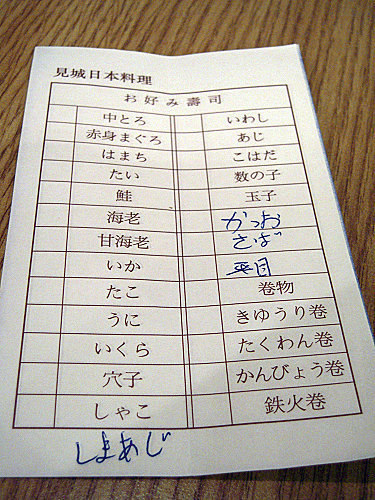 見城日本料理
お好み壽司
中とろ いわし
赤身まぐろ あじ
はまち こはだ
たい 数の子
鮭 玉子
海老 かつお
甘海老 さば
いか 平目
たこ 巻物
うに きゆうり巻
いくら たくわん巻
穴子 かんぴょう巻
しゃこ 鉄火巻
しまあじ